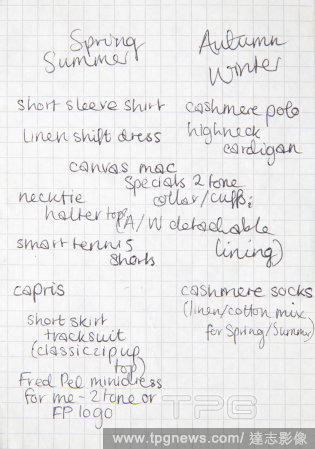 Spring
Summer
Autumn
Winter
short sleeve shirt
cashmere polo
linen shift dress
highneck
cardigan
canvas mac
specials 2 tone
necktie
halter top
collar/cuffs
(A/W detachable
lining)
smart tennis
shorts
capris
cashmere socks
(linen/cotton mix
for Spring/Summer)
short skirt
tracksuit
(classic zip up
top)
Fred Pel minidress
for me - 2 tone or
FP logo
TPG
www.tpgnews.com/達志影像